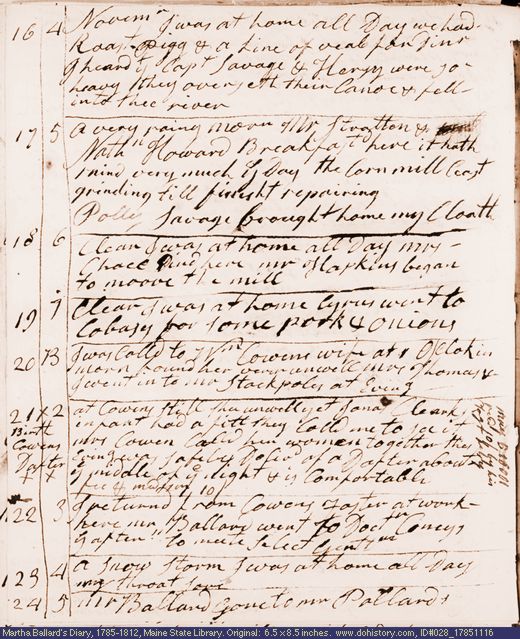 16 4 Novemr I was at home all Day we had
Roast Pigg & a Line of veal for Dinr
I heard yt Capt Savage & Hersy were so
heavy they overset their Canoe & fell
into thee river
17 5 a very rainy morn Mr Stratton &
Nathn Howard Breakfast here it hath
raind very much ys Day the Corn mill Ceast
grinding till finisht repairing
Polly Savage brought home my Cloath
18 6 Clear I was at home all Day mrs
Chace Dind here mr Hapkins began
to moove the mill
19 7 Clear I was at home Cyrus went to
Cabasy for some pork & onions
20 B I was Calld to Wm Cowens wife at 1 O Clok in
morn found her very unwell mrs Thomas &
I went in to mr Stackpoles at Evng
21 x 2 at Cowens Still unwell yet Jona Clark,s
infant had a fitt they Calld me to see it
Birth Cowens Dafter x
mrs Cowen Calld her women together this
Evng was safely Dd of a Dafter about
ye middle of ye night & is Comfortable
fee
22 3 I returnd from Cowens Easter at work
here mr Ballard went to Doctr Coneys
after to meet Select
23 4 a snow storm I was at home all Day
my throat sore
24 5 mr Ballard gone to mr Pollards
Martha Ballard's Diary, 1785-1812, Maine State Library. Original: 6.5 x 8.5 inches. www.dohistory.org, ID#028_17851116